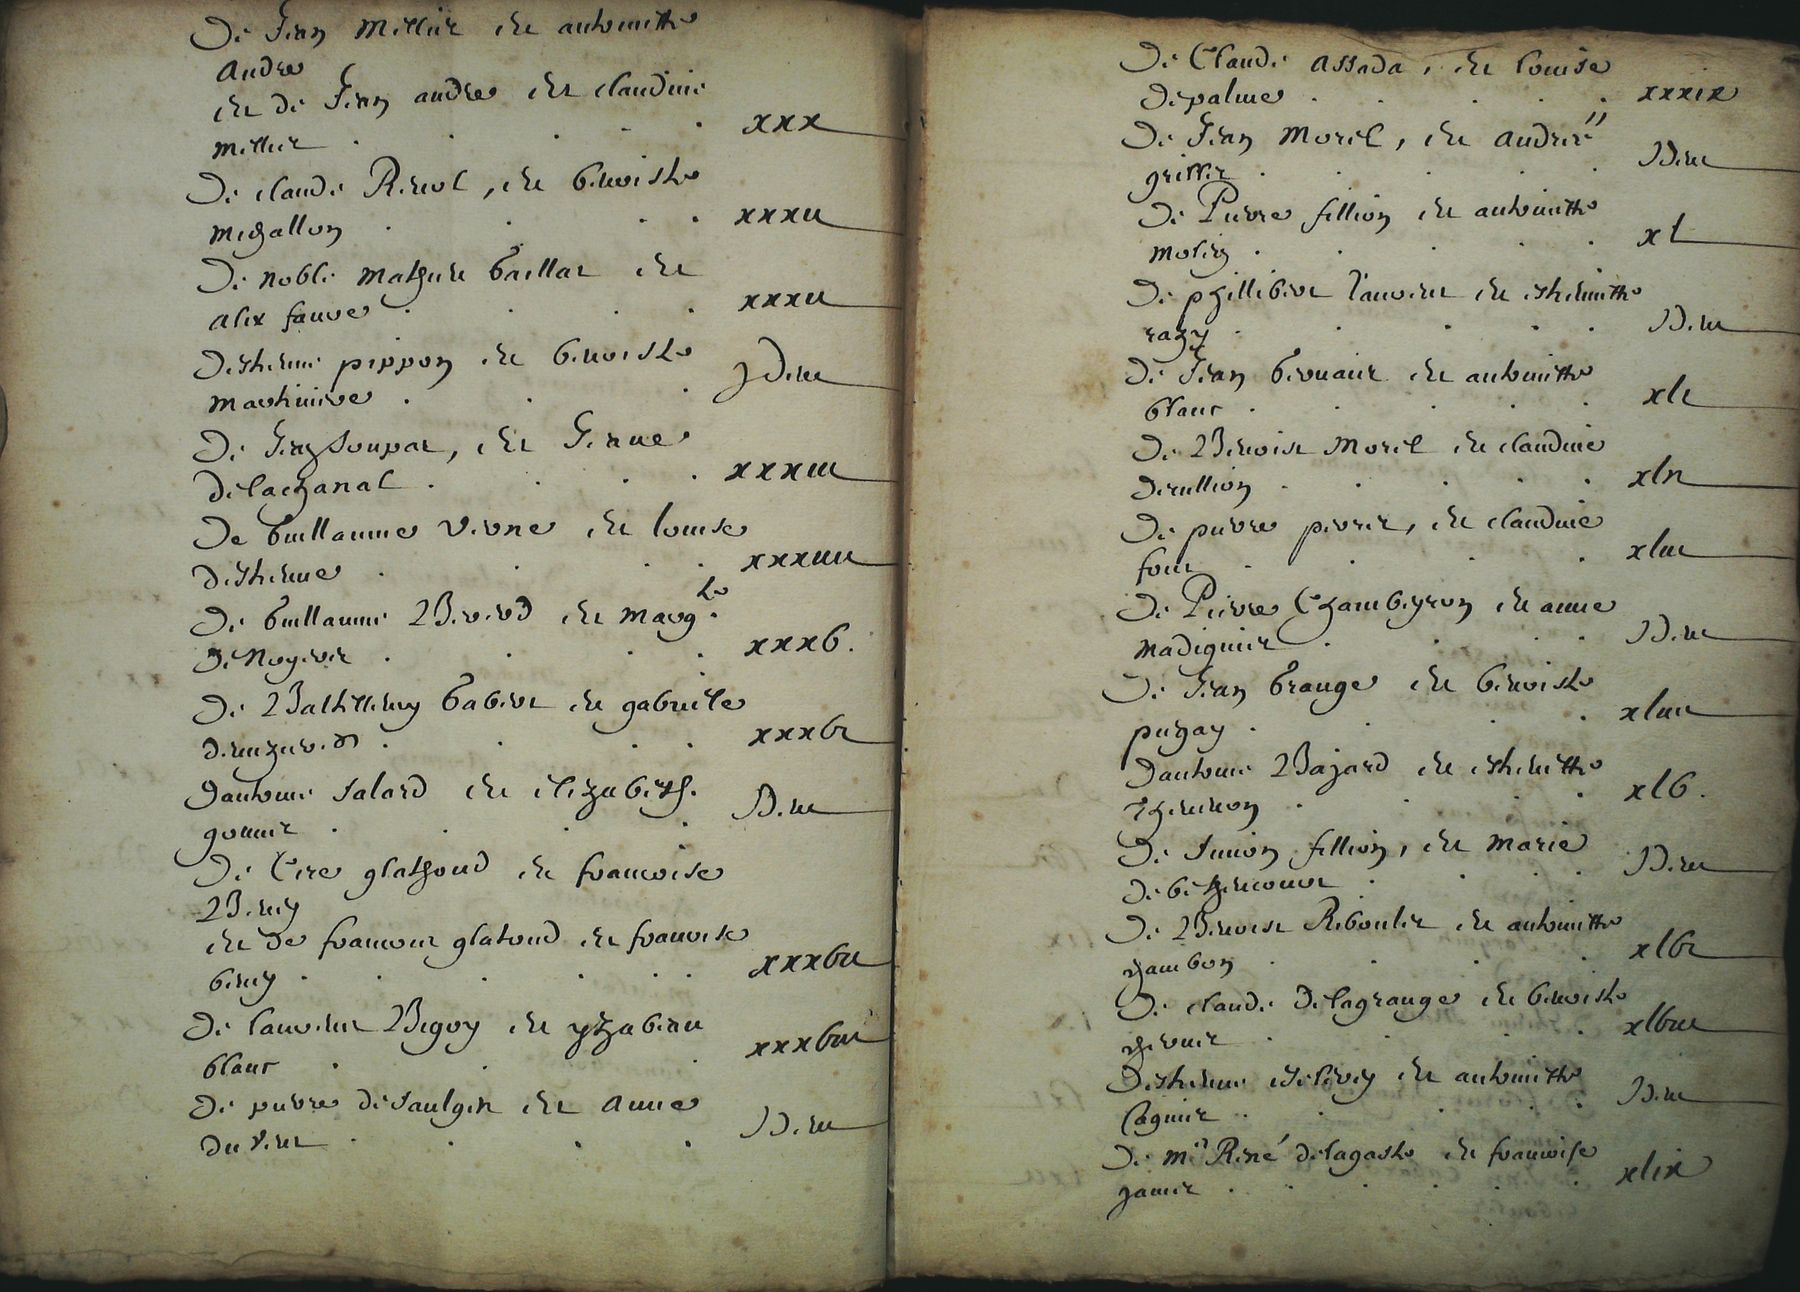 De Jean Mellier et antoinette
Andre
et de Jean andre et claudine
mellier . . . . xxx
De claude Renol, et benoiste
michallon . . . xxxii
De noble mathieu Gaillat et
alix fauve . . . xxxii
Destienne pippon et benoiste
martiniere . . . Idem
De Jean Soupat, et Jeanne
delachanal . . . xxxiii
De Guillaume Verne et louise
destienne . . . xxxiiii
De Guillaume Bererd et Marg.te
De Noyerer . . . xxxb.
De Balthesemy Gabert et gabrielle
. . . xxxbi
Dantoine Salard et elizabeth
gonnir . . . Idem
De Cire glathoud et francoise
Beney
et De francois glatoud et francoise
beney . . . . . xxxbii
De laurent Bigoy et yzabeau
blanc . . . xxxbiii
De pierre desaulgen et Anne
. . . Idem
De Claude Assada, et louise
depalme . . . . xxxix
De Jean Morel, et Andree
grillir . . . . Idem
De Pierre fillion et antoinette
molin . . . . xl
De phillibert laurent et estiennette
rachy . . . . Idem
De Jean Gernaur et antoinette
blanc . . . . xli
De Benoist Morel et claudine
derullion . . . . xlii
De pierre perrir, et claudine
four . . . . xliii
De Pierre Chambeyron et anne
Madignier . . . Idem
De Jean Grange et benoiste
puzay . . . xliiii
Dantoine Bajard et estiennette
thennon . . . xlb.
De Simon fillion, et Marie
de bethencourt . . . Idem
De Benoist Riboulir et antoinette
jambon . . . xlbi
De claude Delagrange et benoiste
. . . xlbiii
Destienne et antoinette
Cagnir . . . . Idem
De Mr René delagaste et francoise
janir . . . . xlix